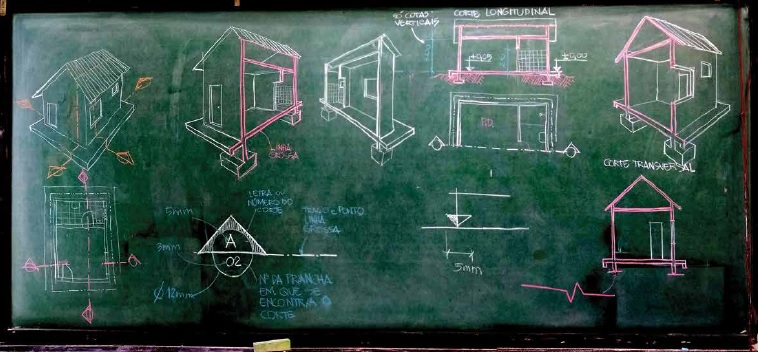 SÓ COTAS
VERTICAIS
CORTE LONGITUDINAL
±0,00
LINHA
GROSSA
CORTE TRANSVERSAL
5mm
LETRA OU
NÚMERO DO
CORTE
TRAÇO E PONTO
LINHA
GROSSA
A
02
3mm
Ø 12mm
Nº DA PRANCHA
EM QUE SE
ENCONTRA O
CORTE
5mm